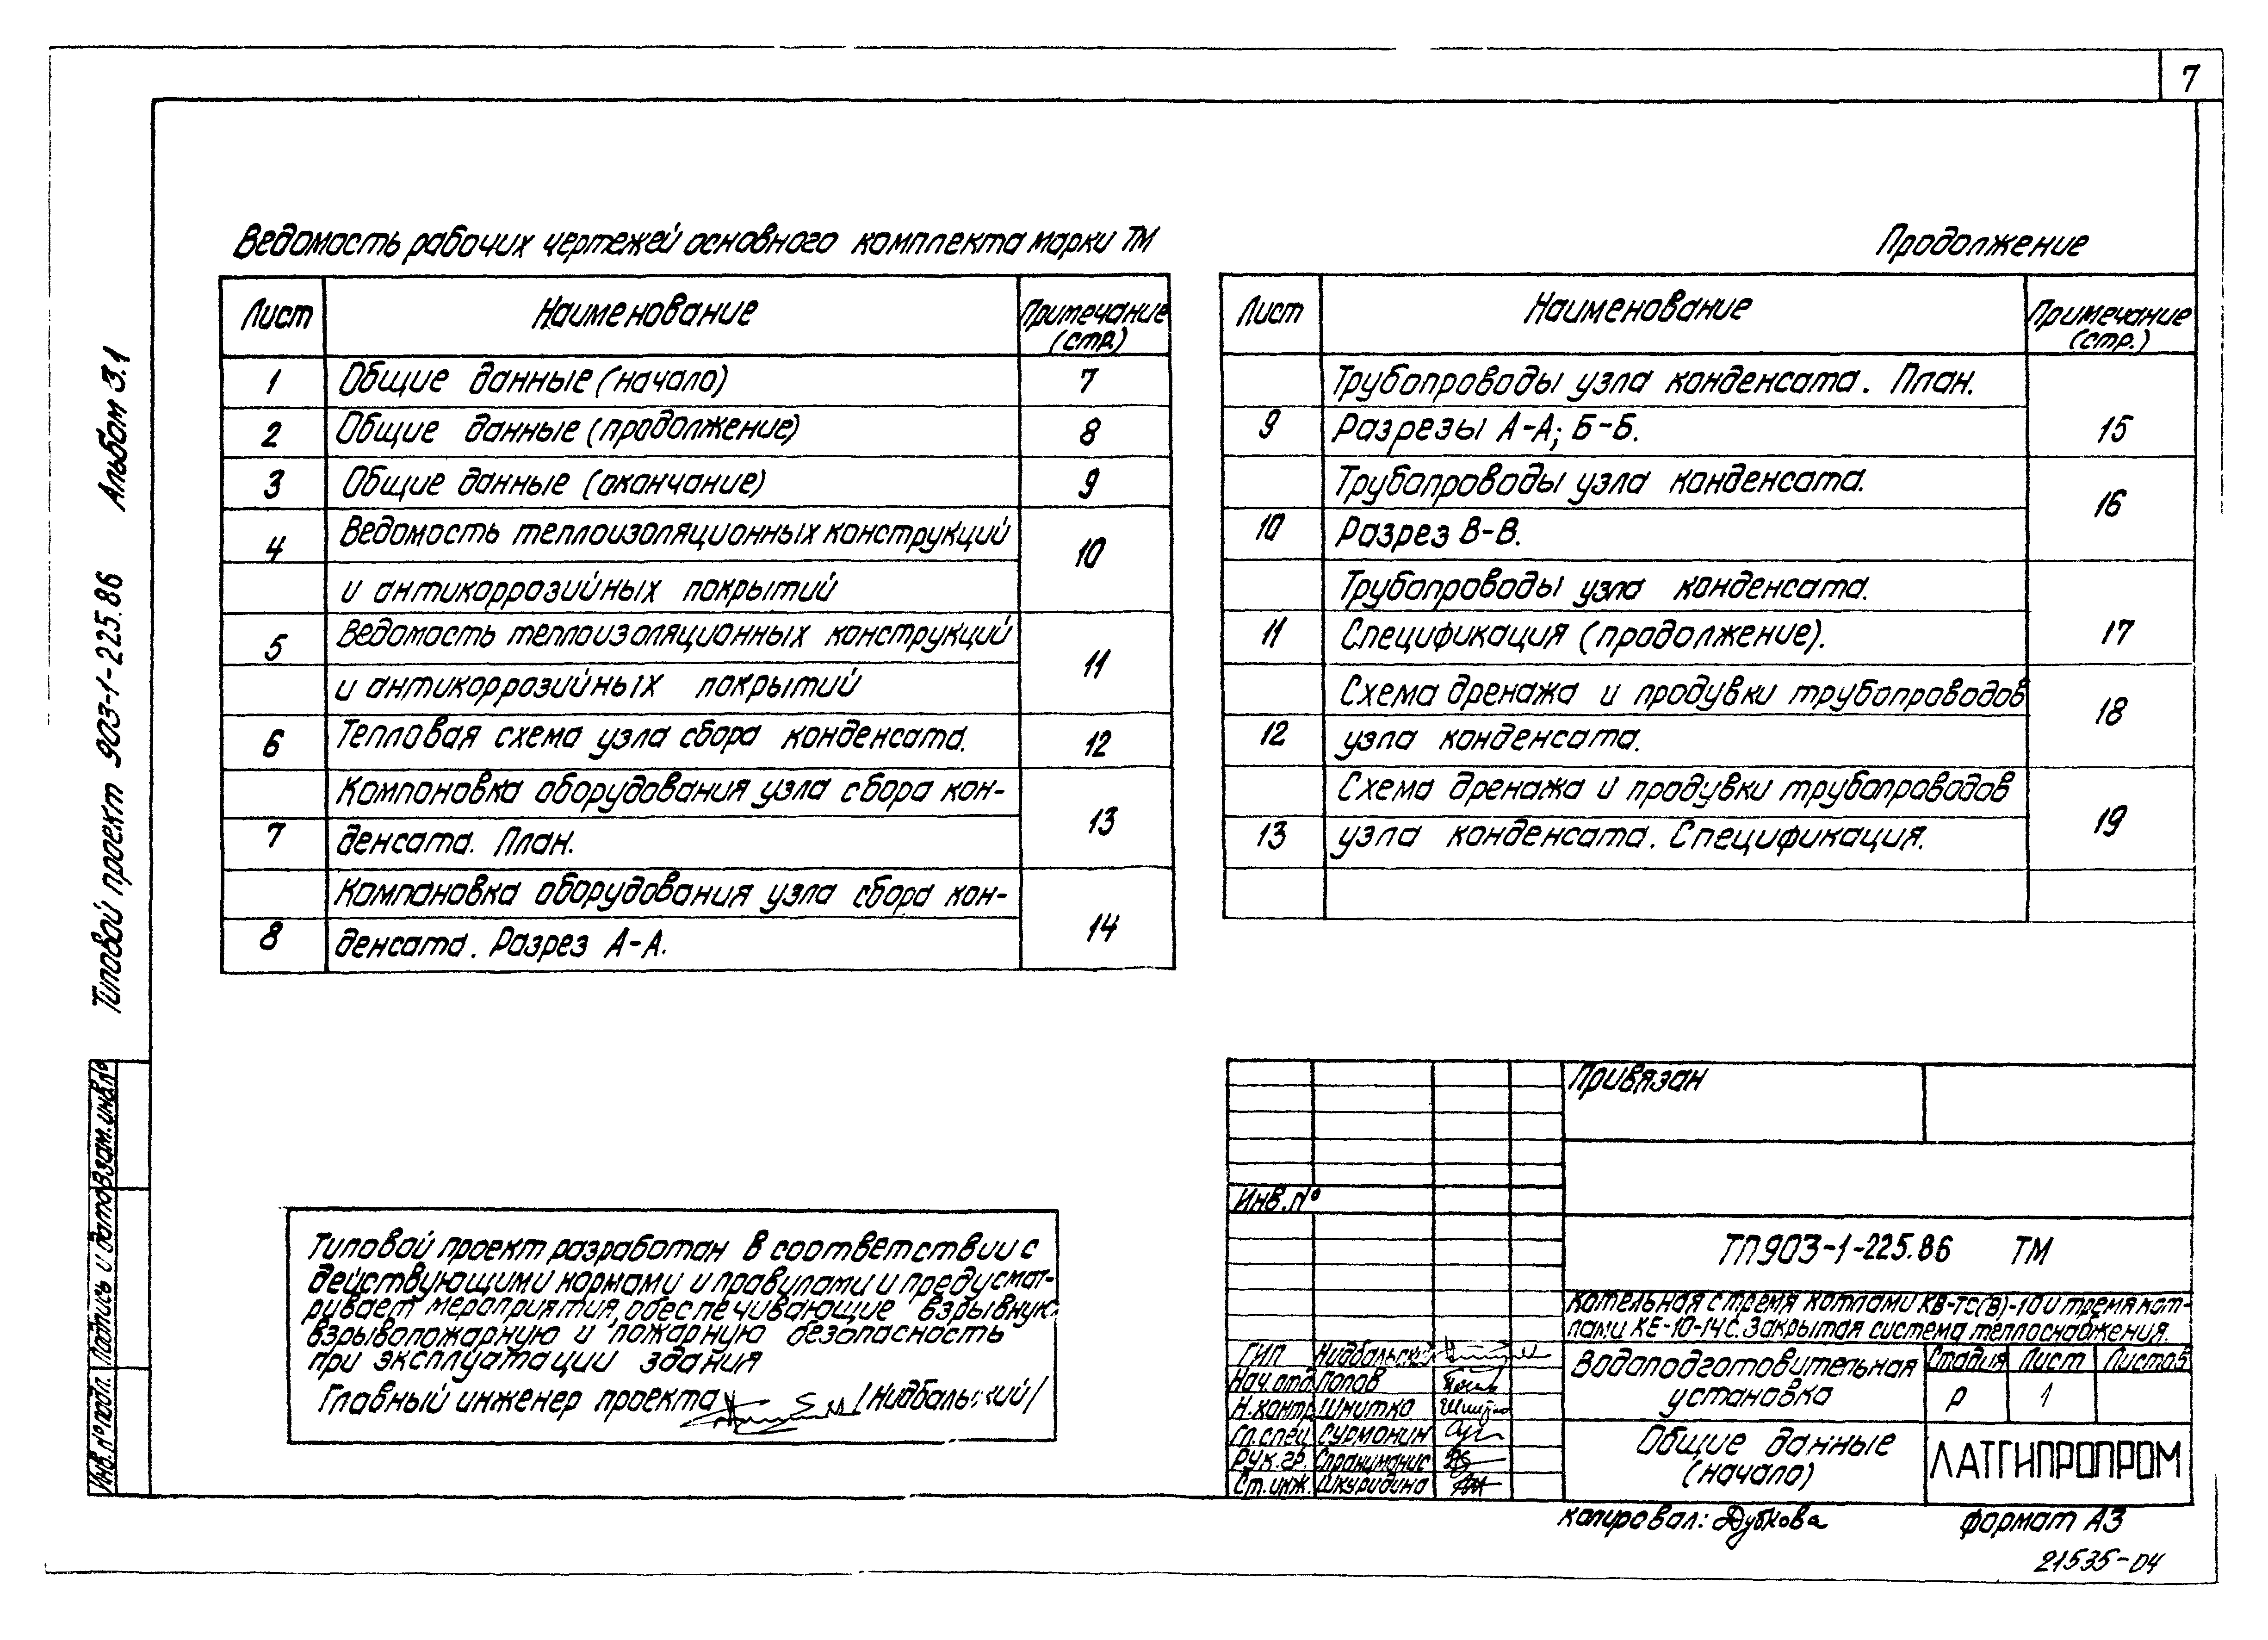 7
Ведомость рабочих чертежей основного комплекта марки ТМ
Лист Наименование Примечание (стр.)
1 Общие данные (начало) 7
2 Общие данные (продолжение) 8
3 Общие данные (окончание) 9
4 Ведомость теплоизоляционных конструкций 10
и антикоррозийных покрытий
5 Ведомость теплоизоляционных конструкций 11
и антикоррозийных покрытий
6 Тепловая схема узла сбора конденсата. 12
Компоновка оборудования узла сбора кон-
7 денсата. План. 13
Компановка оборудования узла сбора кон-
8 денсата. Разрез А-А. 14
Продолжение
Лист Наименование Примечание (стр.)
Трубопроводы узла конденсата. План.
9 Разрезы А-А; Б-Б. 15
Трубопроводы узла конденсата. 16
10 Разрез В-В.
Трубопроводы узла конденсата.
11 Спецификация (продолжение). 17
Схема дренажа и продувки трубопроводов 18
12 узла конденсата.
Схема дренажа и продувки трубопроводов 19
13 узла конденсата. Спецификация.
Типовой проект 903-1-225.86 Альбом 3.1
Инв.№ подл. Подпись и дата Взам.инв.№
Типовой проект разработан в соответствии с
действующими нормами и правилами и предусмат-
ривает мероприятия, обеспечивающие взрывную,
взрывопожарную и пожарную безопасность
при эксплуатации здания
Главный инженер проекта /Нидбальский/
Привязан
Инв.№
ТП903-1-225.86 ТМ
Котельная с тремя котлами КВ-ТС(В)-10 и тремя кот-
лами КЕ-10-14С. Закрытая система теплоснабжения.
ГИП Нидбальский
Нач.отд Попов
Н.контр. Шнитко
Гл.спец Сурмонин
Рук.гр. Спрануманис
Ст.инж. Шкуридина
Водоподготовительная
установка
Стадия Лист Листов
Р 1
Общие данные
(начало)
ЛАТГИПРОПРОМ
копировал: Дубкова формат А3
21535-04